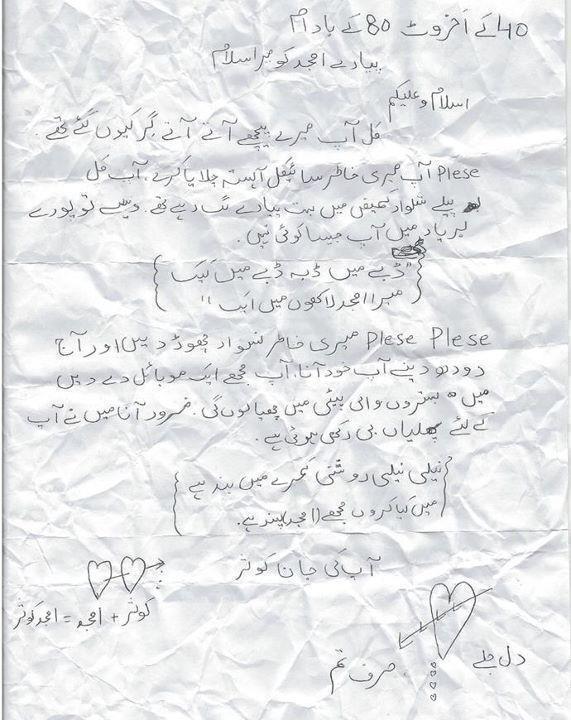 40 کے اخروٹ 80 کے بادام
پیارے امجد کو میرا سلام
اسلام وعلیکم
کل آپ میرے پیچھے آتے آتے گر کیوں گئے تھے.
Plese آپ میری خاطر سائیکل آہستہ چلایا کرے. آپ کل
پیلے شلوار کمیض میں بہت پیارے لگ رہے تھے. ویسے تو پورے
ہر یاد میں آپ جیسا کوئی نہیں.
"ڈبے میں ڈبہ ڈبے میں کیک
میرا امجد لاکھوں میں ایک"
Plese Plese میری خاطر نسوار چھوڑ دیں اور آج
دودھ دینے آپ خود آنا. آپ مجھے ایک موبائل دے دیں
میں بستروں والی پیٹی میں چھپا لوں گی. ضرور آنا میں نے آپ
کے لئے پھلیاں بی رکھی ہوئی ہے.
نیلی نیلی روشنی کمرے میں بند ہے
میں کیا کروں مجھے (امجد) پسند ہے.
آپ کی جان کوثر
کوثر + امجد = امجد کوثر
دل جلے
صرف تم